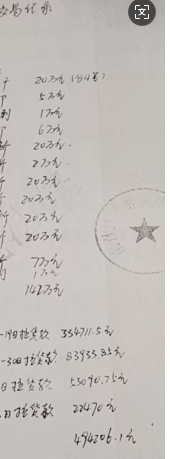 交易记录
20万元(分4笔)
5万元
1万元
6万元
20万元.
2万元.
20万元.
20万元
20万元
20万元
7万元
1万元
142万元
-19日拉货款 334711.5元
-30日拉货款 83935.85元
日拉货款 53090.75元
日拉货款 22470元
494206.1元